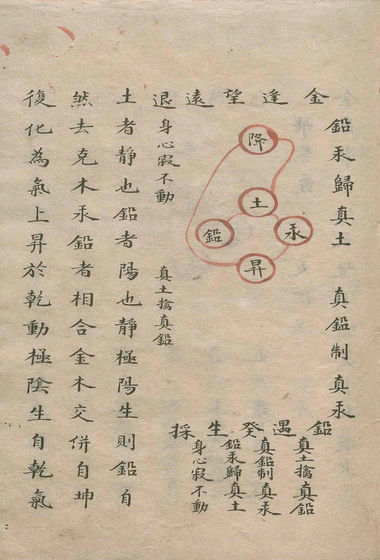 鉛汞歸真土　真鉛制真汞
金逢望遠退
降
土
汞
鉛
昇
鉛遇癸生採
真土擒真鉛
真鉛制真汞
鉛汞歸真土
身心寂不動
身心寂不動　真土擒真鉛
土者靜也鉛者陽也靜極陽生則鉛自
然去克木汞鉛者相合金木交併自坤
復化為氣上昇於乾動極陰生自乾氣